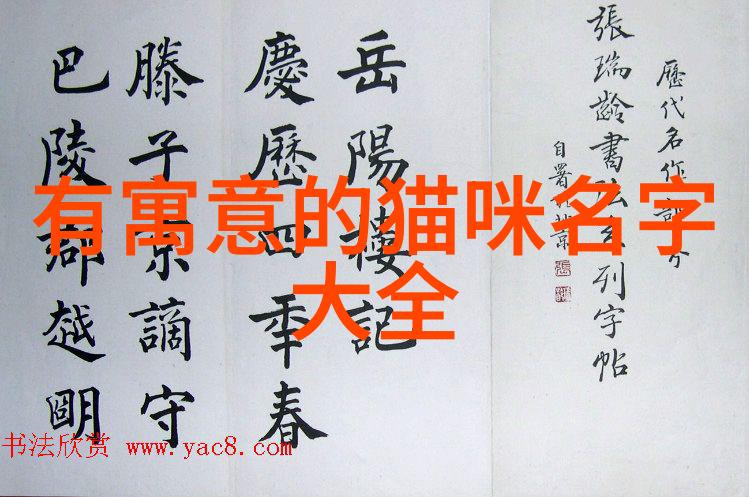 歷代名作部分
張瑞齡書法系列字帖
自署於北京
岳陽樓記
慶歷四年春
滕子京謫守
巴陵郡越明
有寓意的猫咪名字
大全
书法欣赏 www.yac8.com